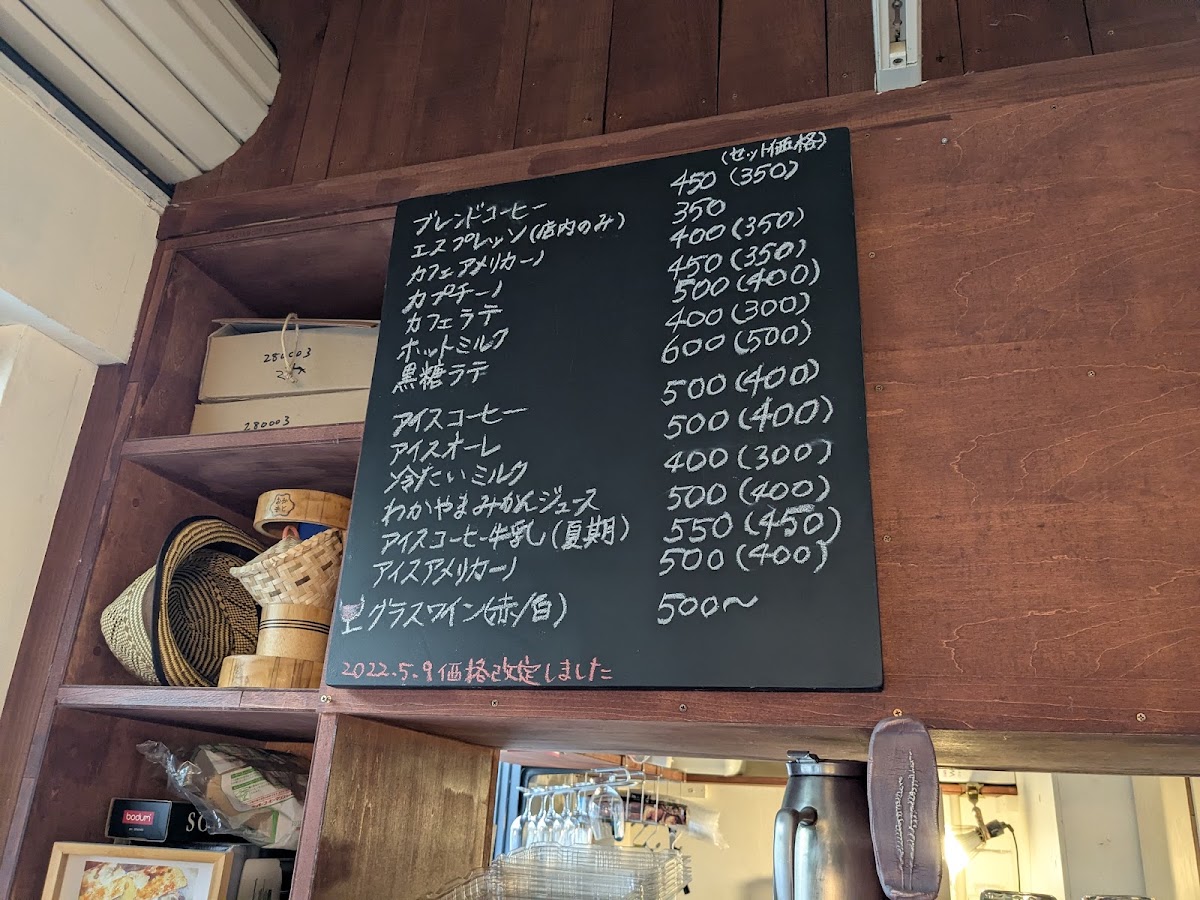 (セット価格)
ブレンドコーヒー 450 (350)
エスプレッソ(店内のみ) 350
カフェアメリカーノ 400 (350)
カプチーノ 450 (350)
カフェラテ 500 (400)
ホットミルク 400 (300)
黒糖ラテ 600 (500)
アイスコーヒー 500 (400)
アイスオーレ 500 (400)
冷たいミルク 400 (300)
わかやまみかんジュース 500 (400)
アイスコーヒー牛乳(夏期) 550 (450)
アイスアメリカーノ 500 (400)
グラスワイン(赤/白) 500〜
2022.5.9 価格改定しました
280003
280003
bodum